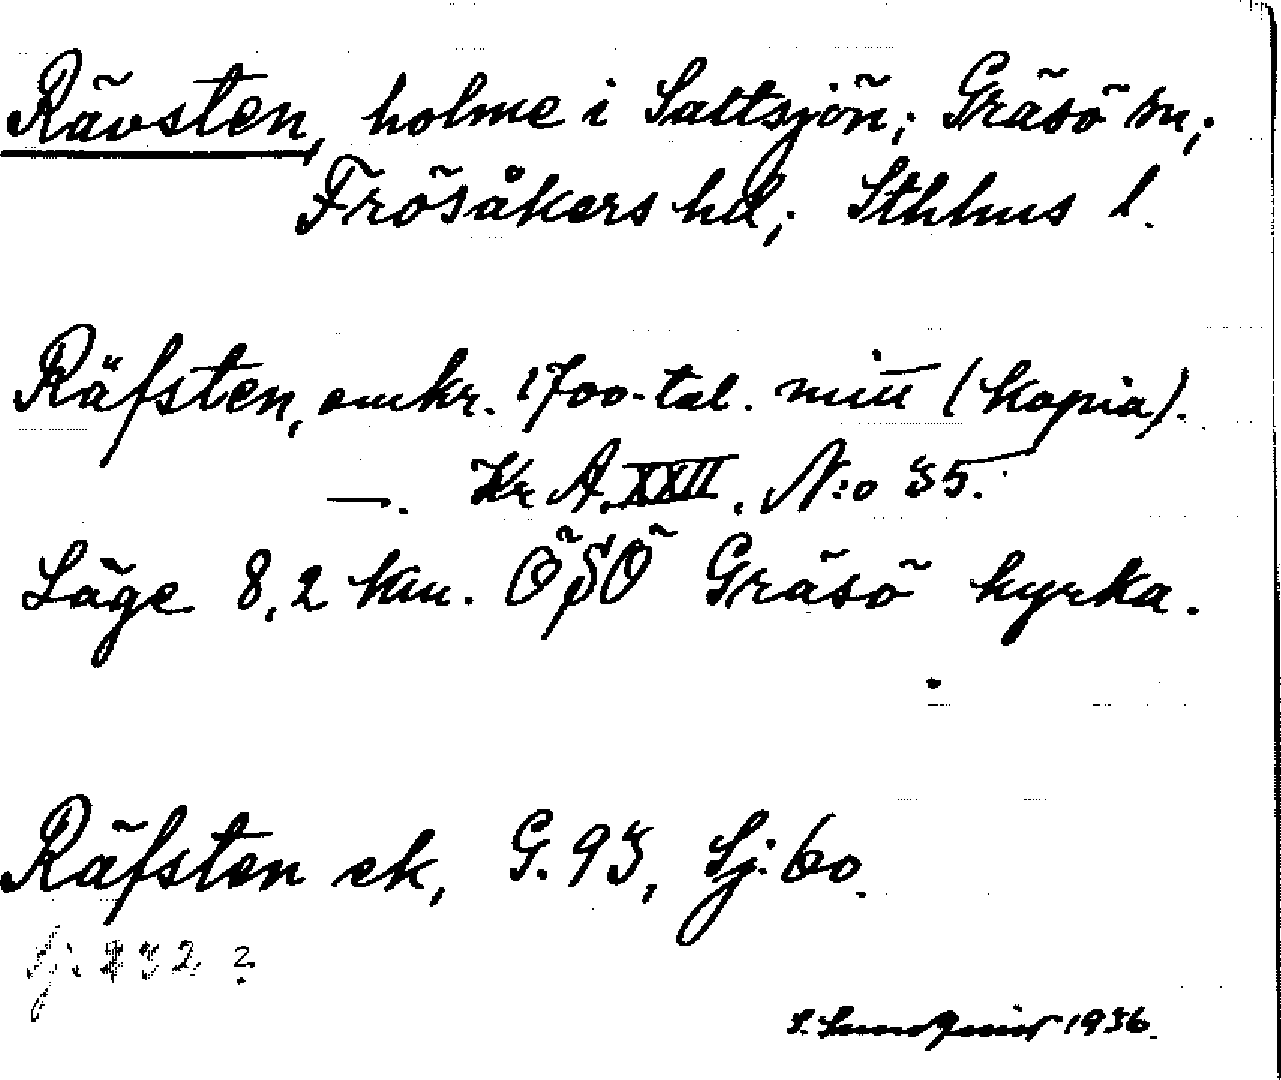 Rävsten, holme i Saltsjön; Gräsö sn;
Frösåkers hd; Sthlms l.
Räfsten, omkr. 1700-tal. mitt (Kopia).
—. Kr A. XXII. N:o 35.
Läge 8,2 km. ÖSÖ Gräsö kyrka.
Räfsten ek, G. 93, Sj. 60.
Sj. 232 ?
S. Lundquist 1936.